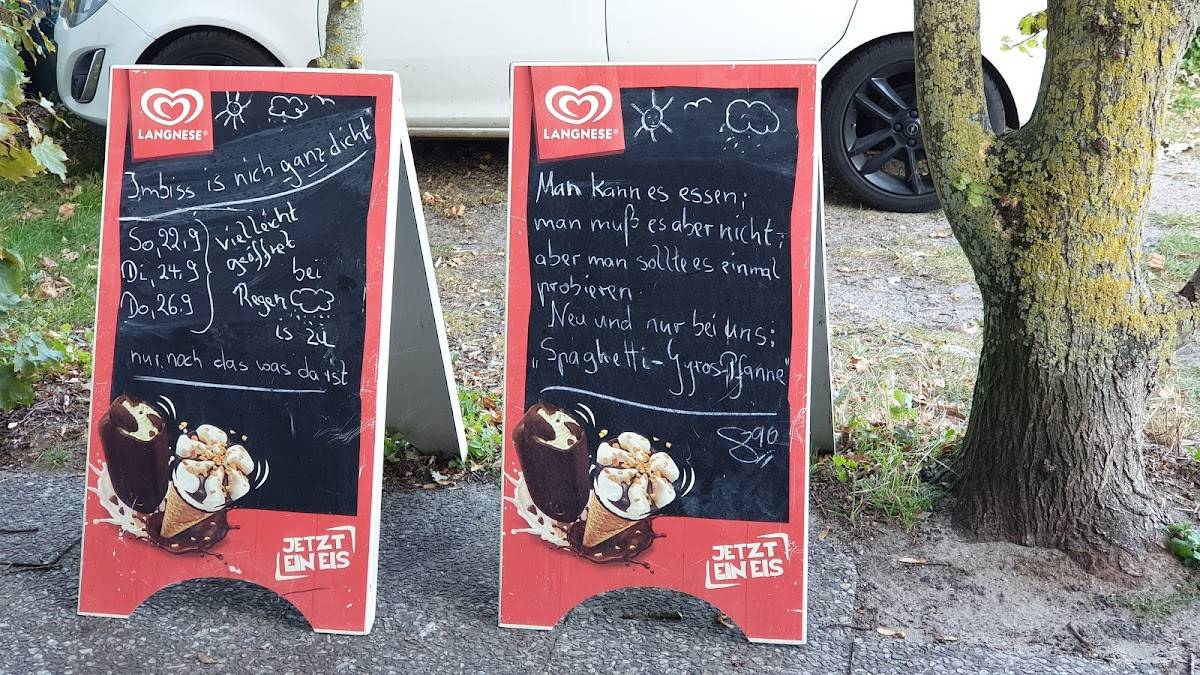 LANGNESE®
Imbiss is nich ganz dicht
So, 22.9
Di, 24.9
Do, 26.9
vielleicht
geöffnet
bei
Regen
is zu
nur noch das was da ist
JETZT
EIN EIS
LANGNESE®
Man kann es essen;
man muß es aber nicht;
aber man sollte es einmal
probieren.
Neu und nur bei uns:
"Spaghetti-Gyros Pfanne"
890
JETZT
EIN EIS